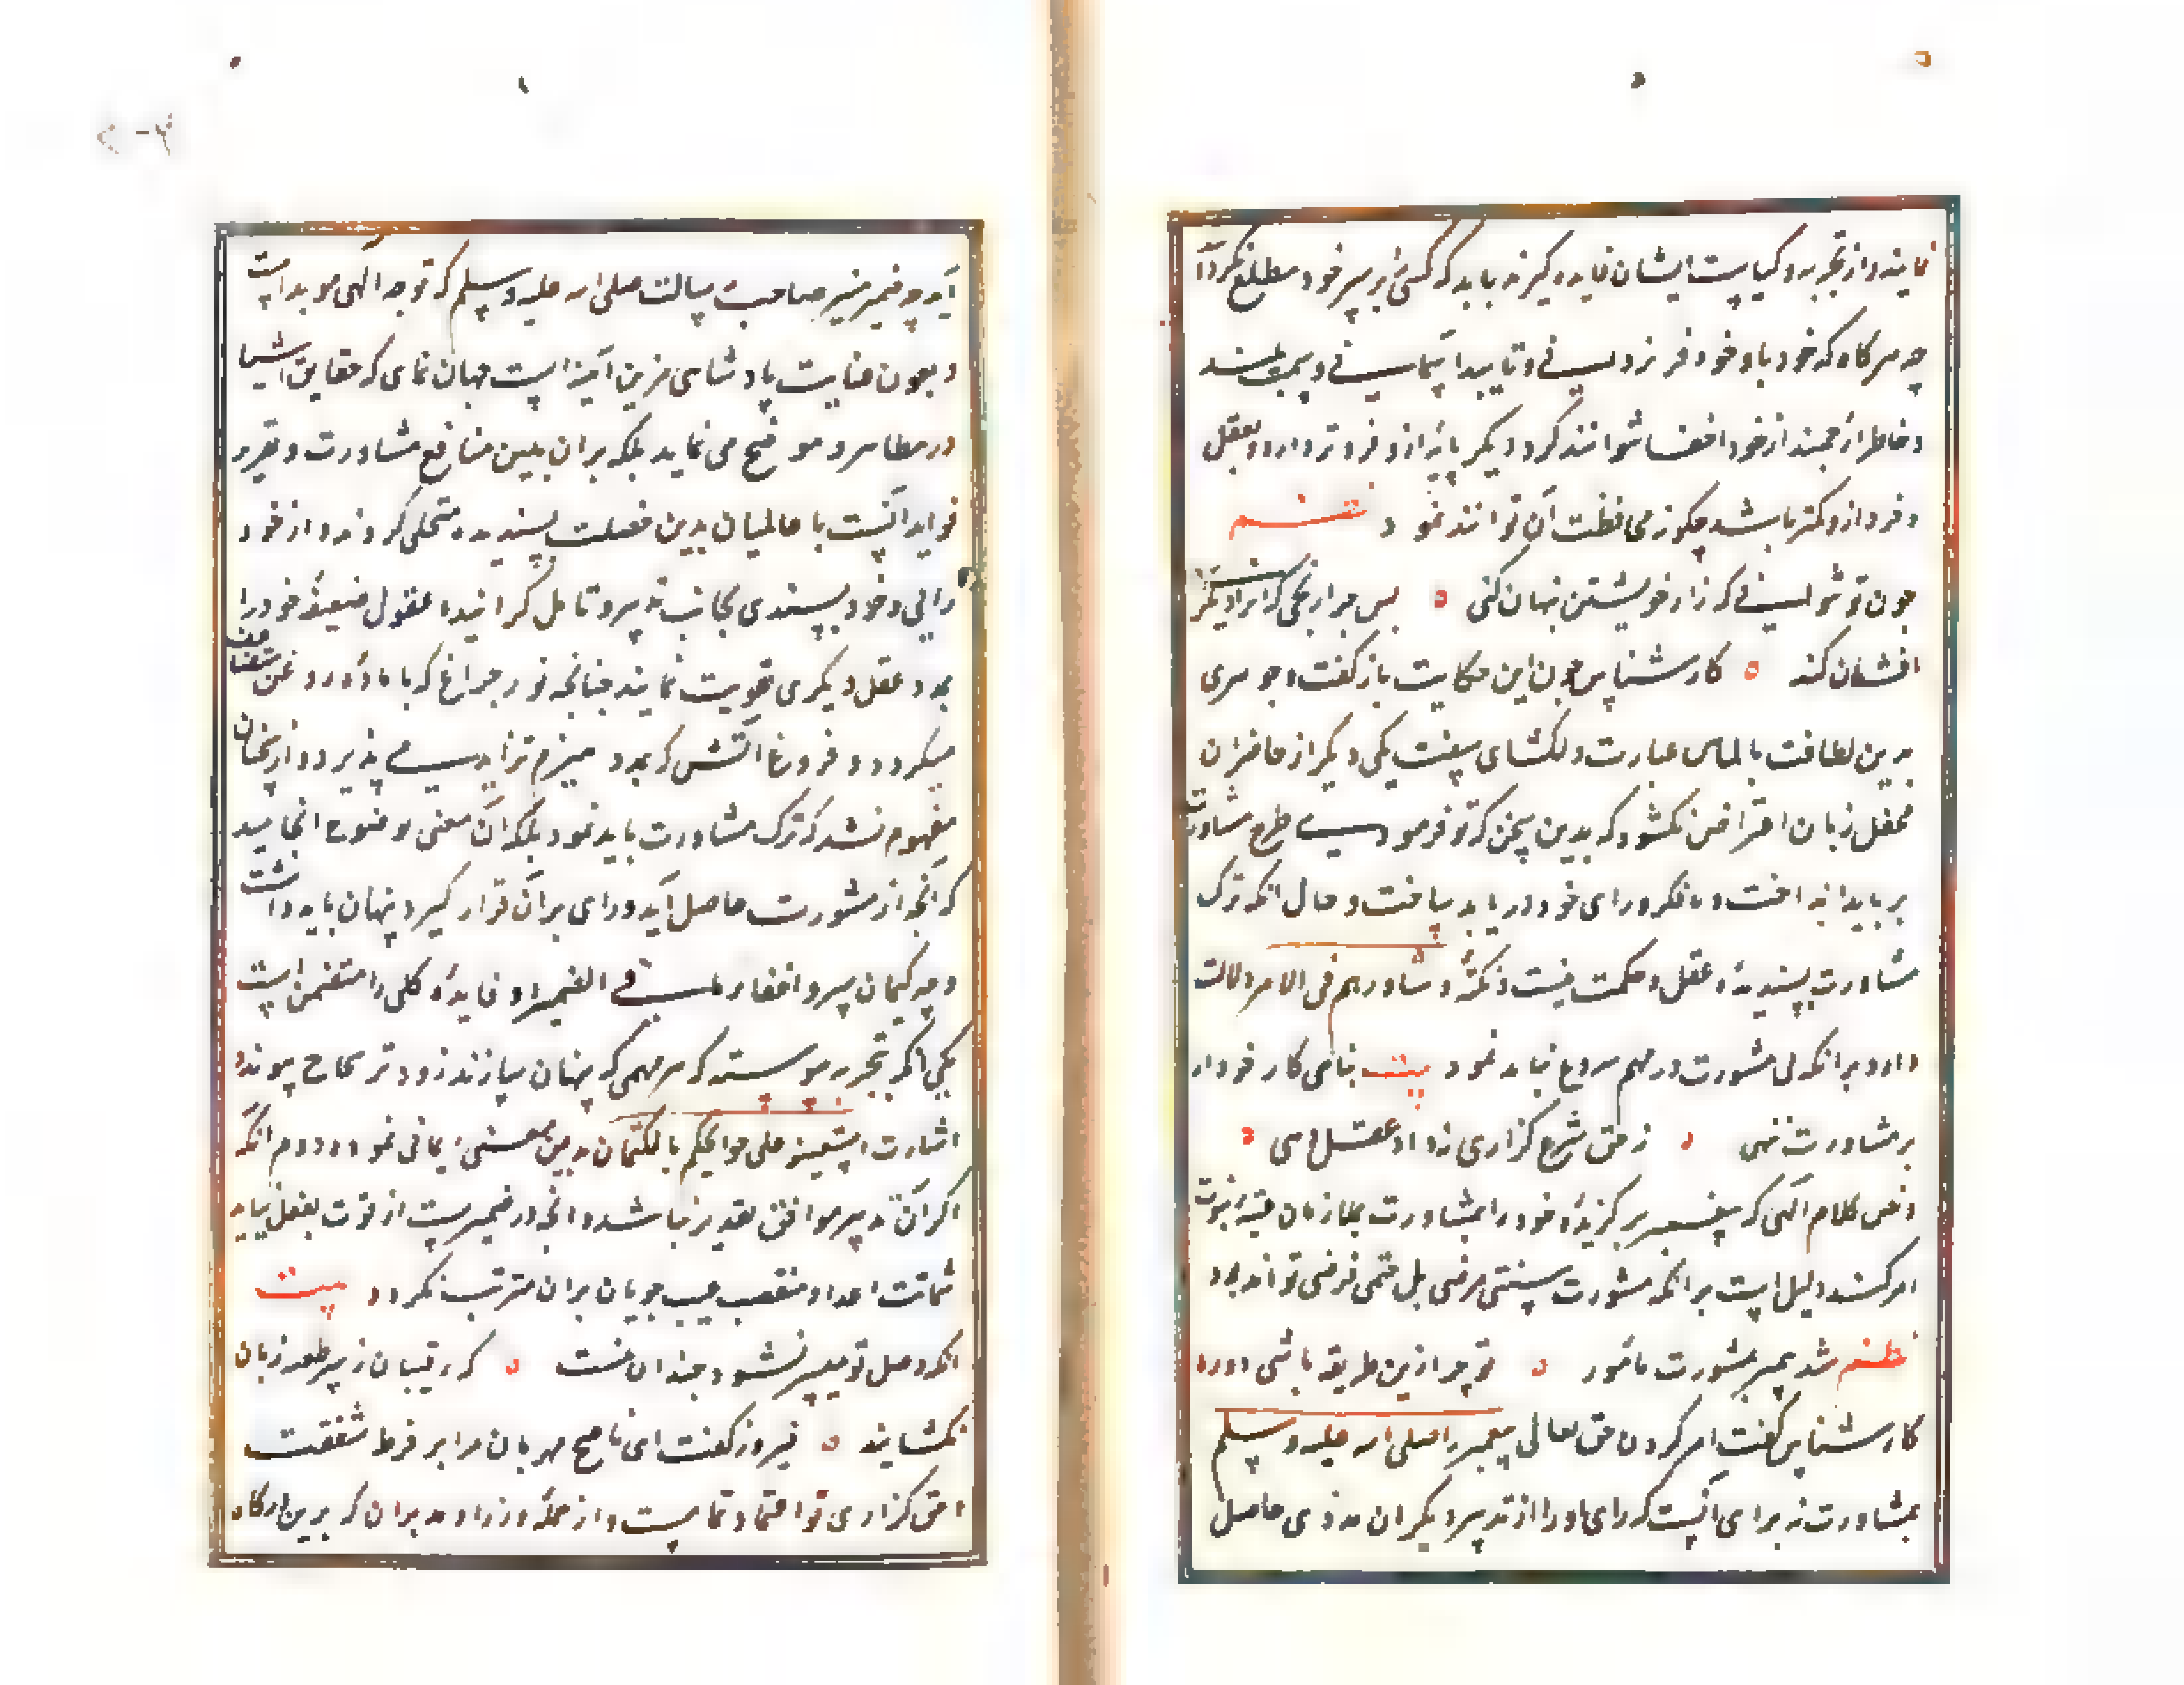 نمایند و از تجربه و کیاست ایشان فایده گیرند باید که کسی را بر سر خود مطلع نگرداند
چه هرگاه که خود با وجود فر ایزدی و تایید آسمانی و همت بلند
و خاطر ارجمند از خود اخفا نتوانند کرد دیگر پایه از و فروتر دارد و بعقل
و خرد از و کمتر باشد چگونه محافظت آن توانند نمود نظم
چون تو نتوانی که راز خویشتن پنهان کنی ه پس چرا رنجی که آنرا دیگری
افشان کند ه کارشناس چون این حکایت بازگفت و جوهری
بدین لطافت بالماس عبارت دلکشای سفت یکی دیگر از حاضران
محفل زبان اعتراض بکشود که بدین سخن که تو فرمودی طرح مشاورت
بر باید انداخت و با فکر و رای خود در باید ساخت و حال آنکه ترک
مشاورت پسندیده عقل و حکمت نیست و نکته و شاورهم فی الامر دلالت
دارد بر آنکه بی مشورت در مهم شروع نباید نمود بیت بنای کار خود ار
بر مشاورت ننهی ه نه حق شرع گزاری نه داد عقل دهی ه
و نص کلام الهی که پیغمبر برگزیده خود را بمشاورت ملازمان عتبه نبوت
امر کند دلیل است بر آنکه مشورت سنتی مرضی بل حتمی فرضی تواند بود
نظم شد پیمبر بمشورت مامور ه تو چرا زین طریقه باشی دور ه
کارشناس گفت امر کردن حق تعالی پیغمبر را صلی الله علیه و سلم
بمشاورت نه برای آنست که رای او را از تدبیر دیگران مددی حاصل
آید چه ضمیر منیر صاحب رسالت صلی الله علیه و سلم که توجه الهی موید است
و بعون عنایت پادشاهی مزین آینه است جهان نمای که حقایق اشیا
در مظاهر و موضح می نماید بلکه بران بیین منافع مشاورت و تقریر
فواید آنست تا عالمیان بدین خصلت پسندیده متحلی گردند و از خود
رایی و خود پسندی بجانب تدبیر و تامل گراینده عقول ضعیفه خود را
بمدد عقل دیگری تقویت نمایند چنانچه نور چراغ که با ماده روغن مضاعف
میگردد و فروغ آتش که بمدد هیزم تزاید می پذیرد و از سخنان
مفهوم نشد که ترک مشاورت باید نمود بلکه آن معنی بوضوح انجامید
که آنچه از مشورت حاصل آید و رای بر آن قرار گیرد پنهان باید داشت
و چه کتمان سر و اخفاء ما فی الضمیر دو فایده کلی را متضمن است
یکی آنکه بتجربه پیوسته که هر مهمی که پنهان سازند زودتر بنجاح پیوندد
اشارت استعینوا علی حوایجکم بالکتمان بدین معنی ایمائی نموده دوم آنکه
اگر آن تدبیر موافق تقدیر نباشد و آنچه در ضمیر است از قوت بفعل نیاید
شماتت اعدا و منقصت عیب جویان بران مترتب نگردد بیت
اگر وصل تو میسر نشود چندان نیست ه که رقیبان ز پی طعنه زبان
نگشایند ه فیروز گفت ای ناصح مهربان مرا بر فرط شفقت
و حق گزاری تو اعتماد تمام است و از جمله وزراء و مدبران که برین درگاه